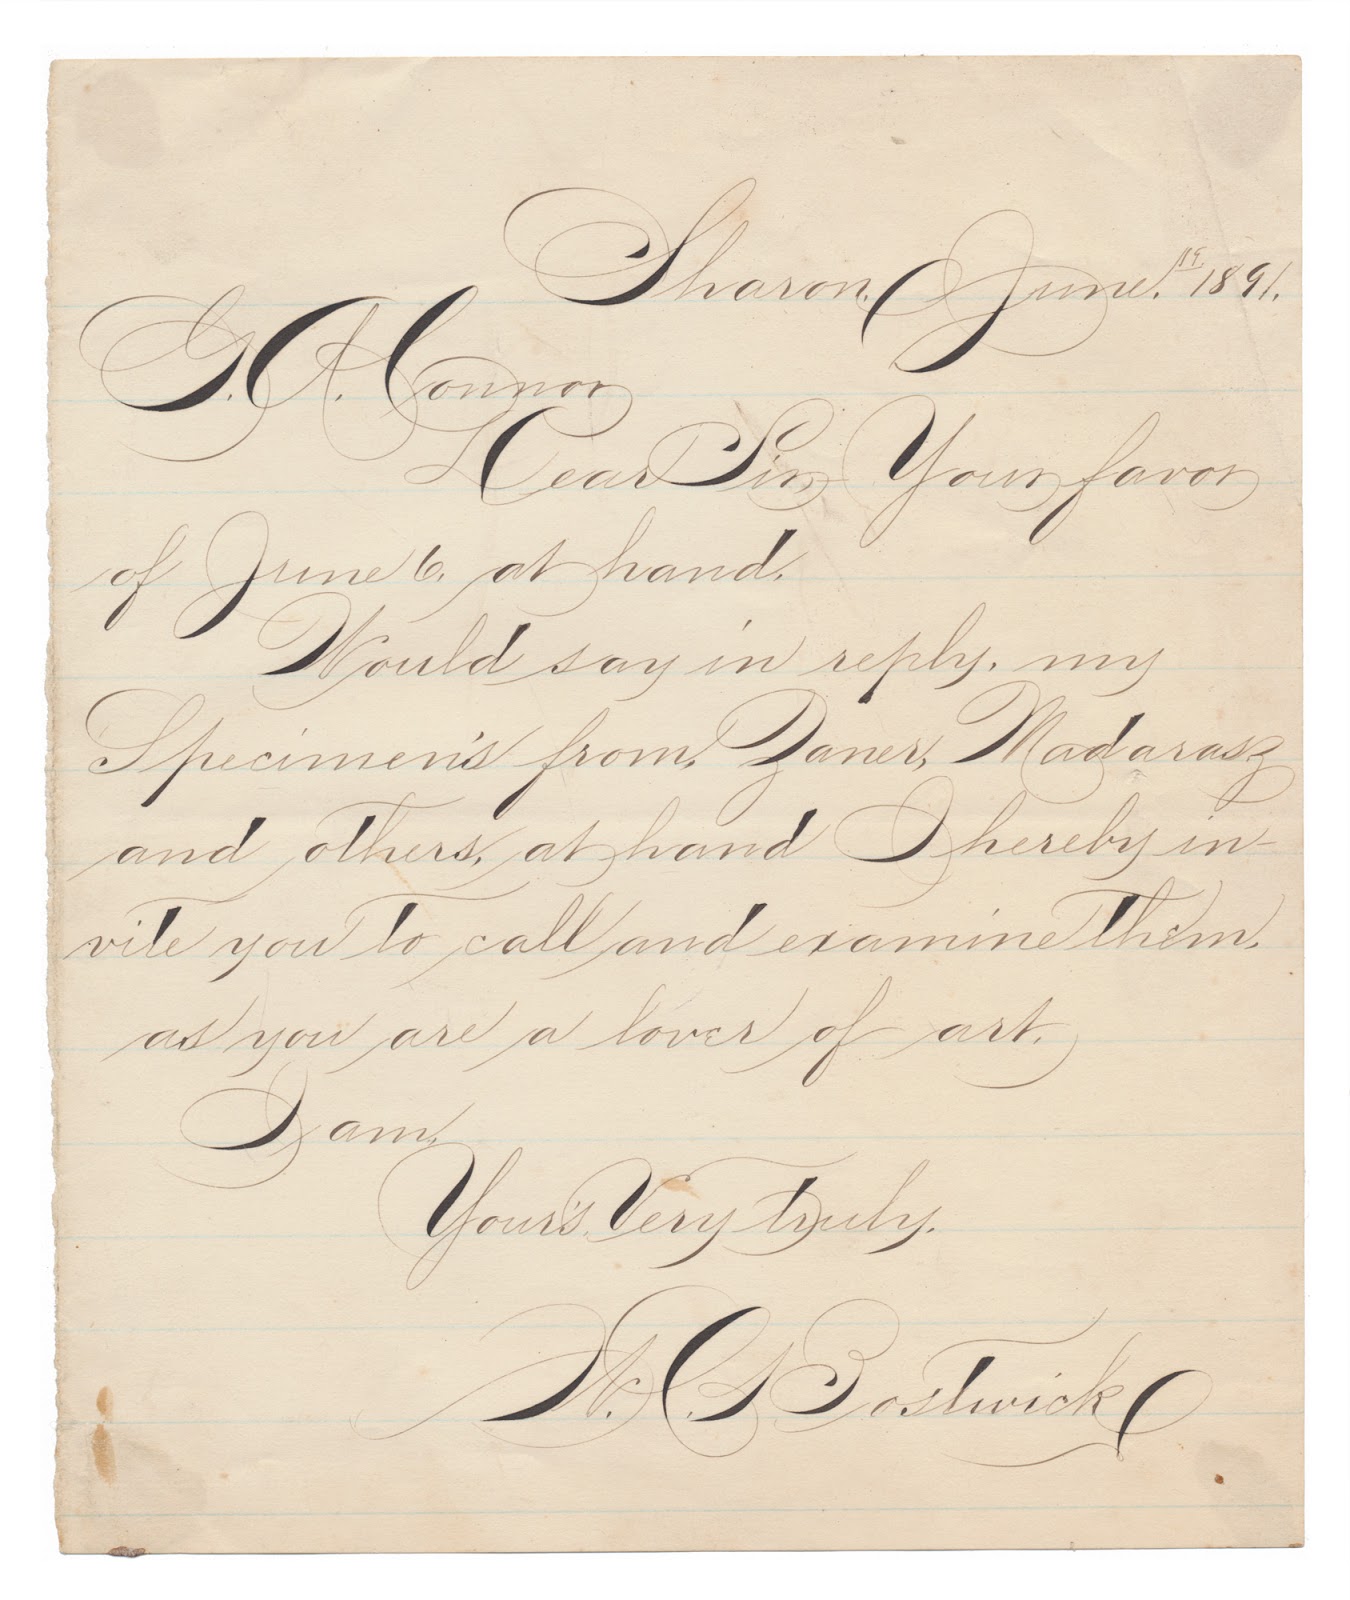 Sharon, June. 19, 1891.
G. A. Connor
Dear Sir Your favor
of June 6. at hand.
Would say in reply. my
Specimen's from, Zaner, Madarasz
and others, at hand I hereby in-
vite you to call and examine them.
as you are a lover of art.
I am,
Your's Very Truly.
Bostwick